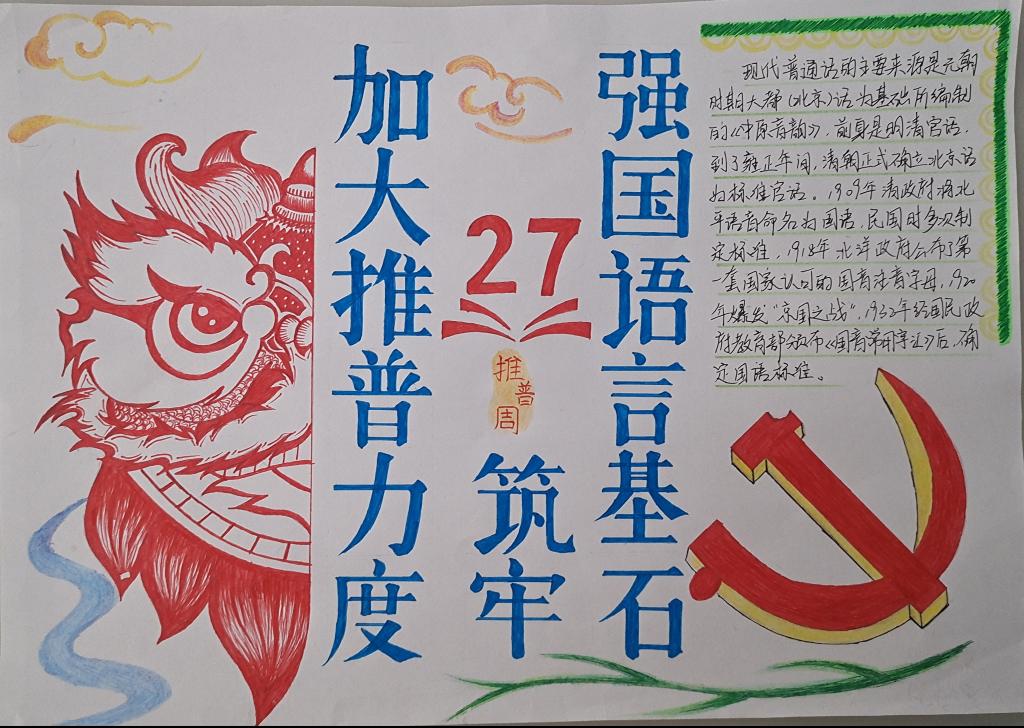 加大推普力度
27
推普周
筑牢
强国语言基石
现代普通话的主要来源是元朝
时期大都(北京)话为基础所编制
的《中原音韵》，前身是明清官话，
到了雍正年间，清朝正式确立北京话
为标准官话。1909年清政府将北
平语音命名为国语，民国时多次制
定标准，1918年北洋政府公布了第
一套国家认可的国音注音字母，1920
年爆发“京国之战”，1932年经国民政
府教育部颁布《国音常用字汇》后，确
定国语标准。